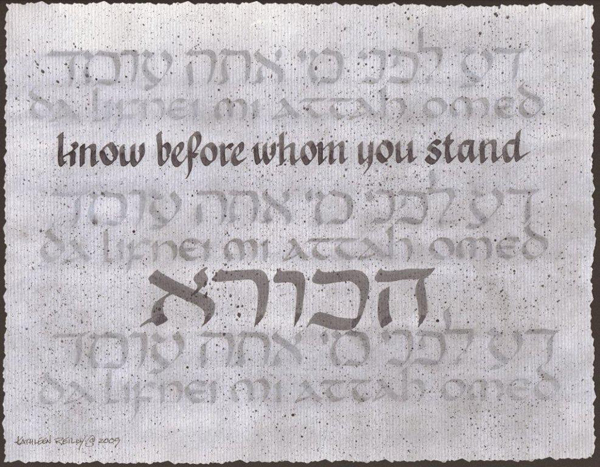 דע לפני מי אתה עומד
da lifnei mi attah omed
know before whom you stand
דע לפני מי אתה עומד
da lifnei mi attah omed
הכורא
דע לפני מי אתה עומד
da lifnei mi attah omed
KATHLEEN REILLY © 2009